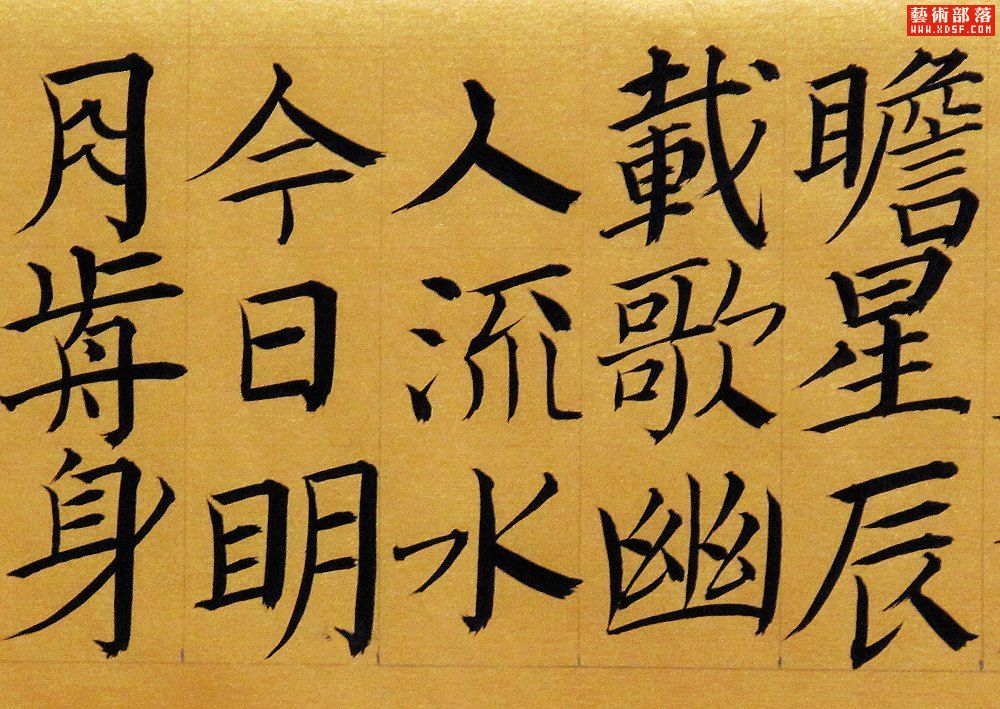 瞻星辰
載歌幽
人流水
今日眀
月歬身
藝術部落
WWW.XDSF.COM